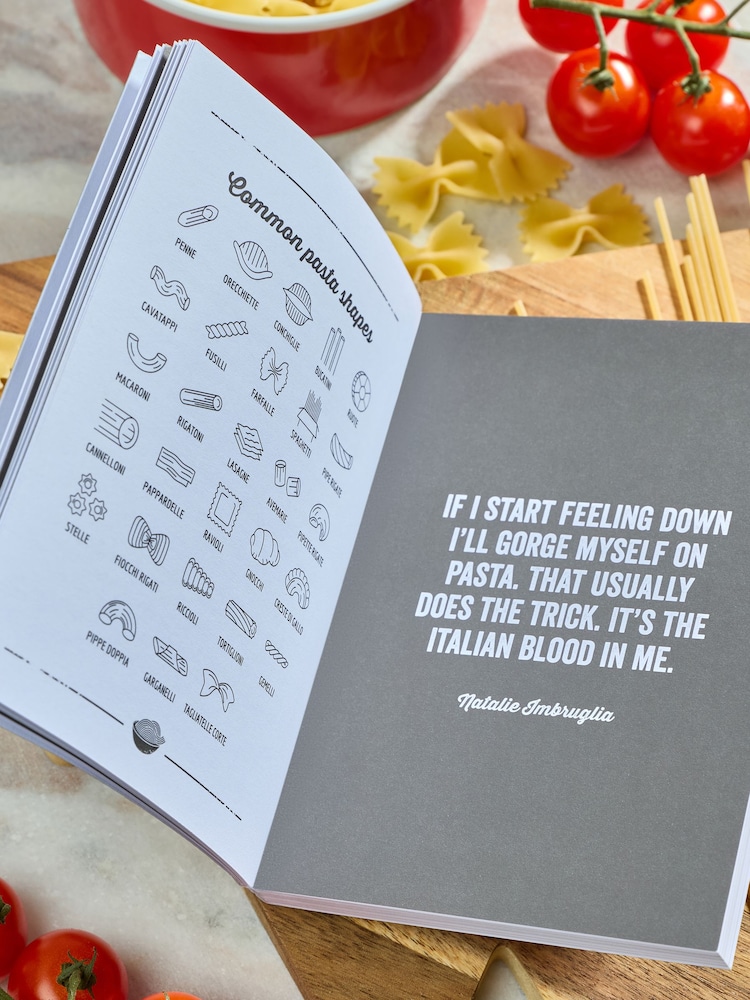 Common pasta shapes
PENNE
ORECCHIETTE
CONCHIGLIE
BUCATINI
RUOTE
CAVATAPPI
FUSILLI
FARFALLE
SPAGHETTI
PIPE RIGATE
MACARONI
RIGATONI
LASAGNE
AVEMARIE
PIPETTE RIGATE
CANNELLONI
PAPPARDELLE
RAVIOLI
GNOCCHI
CRESTE DI GALLO
STELLE
FIOCCHI RIGATI
RICCIOLI
TORTIGLIONI
GEMELLI
PIPPE DOPPIA
GARGANELLI
TAGLIATELLE CORTE
IF I START FEELING DOWN
I'LL GORGE MYSELF ON
PASTA. THAT USUALLY
DOES THE TRICK. IT'S THE
ITALIAN BLOOD IN ME.
Natalie Imbruglia